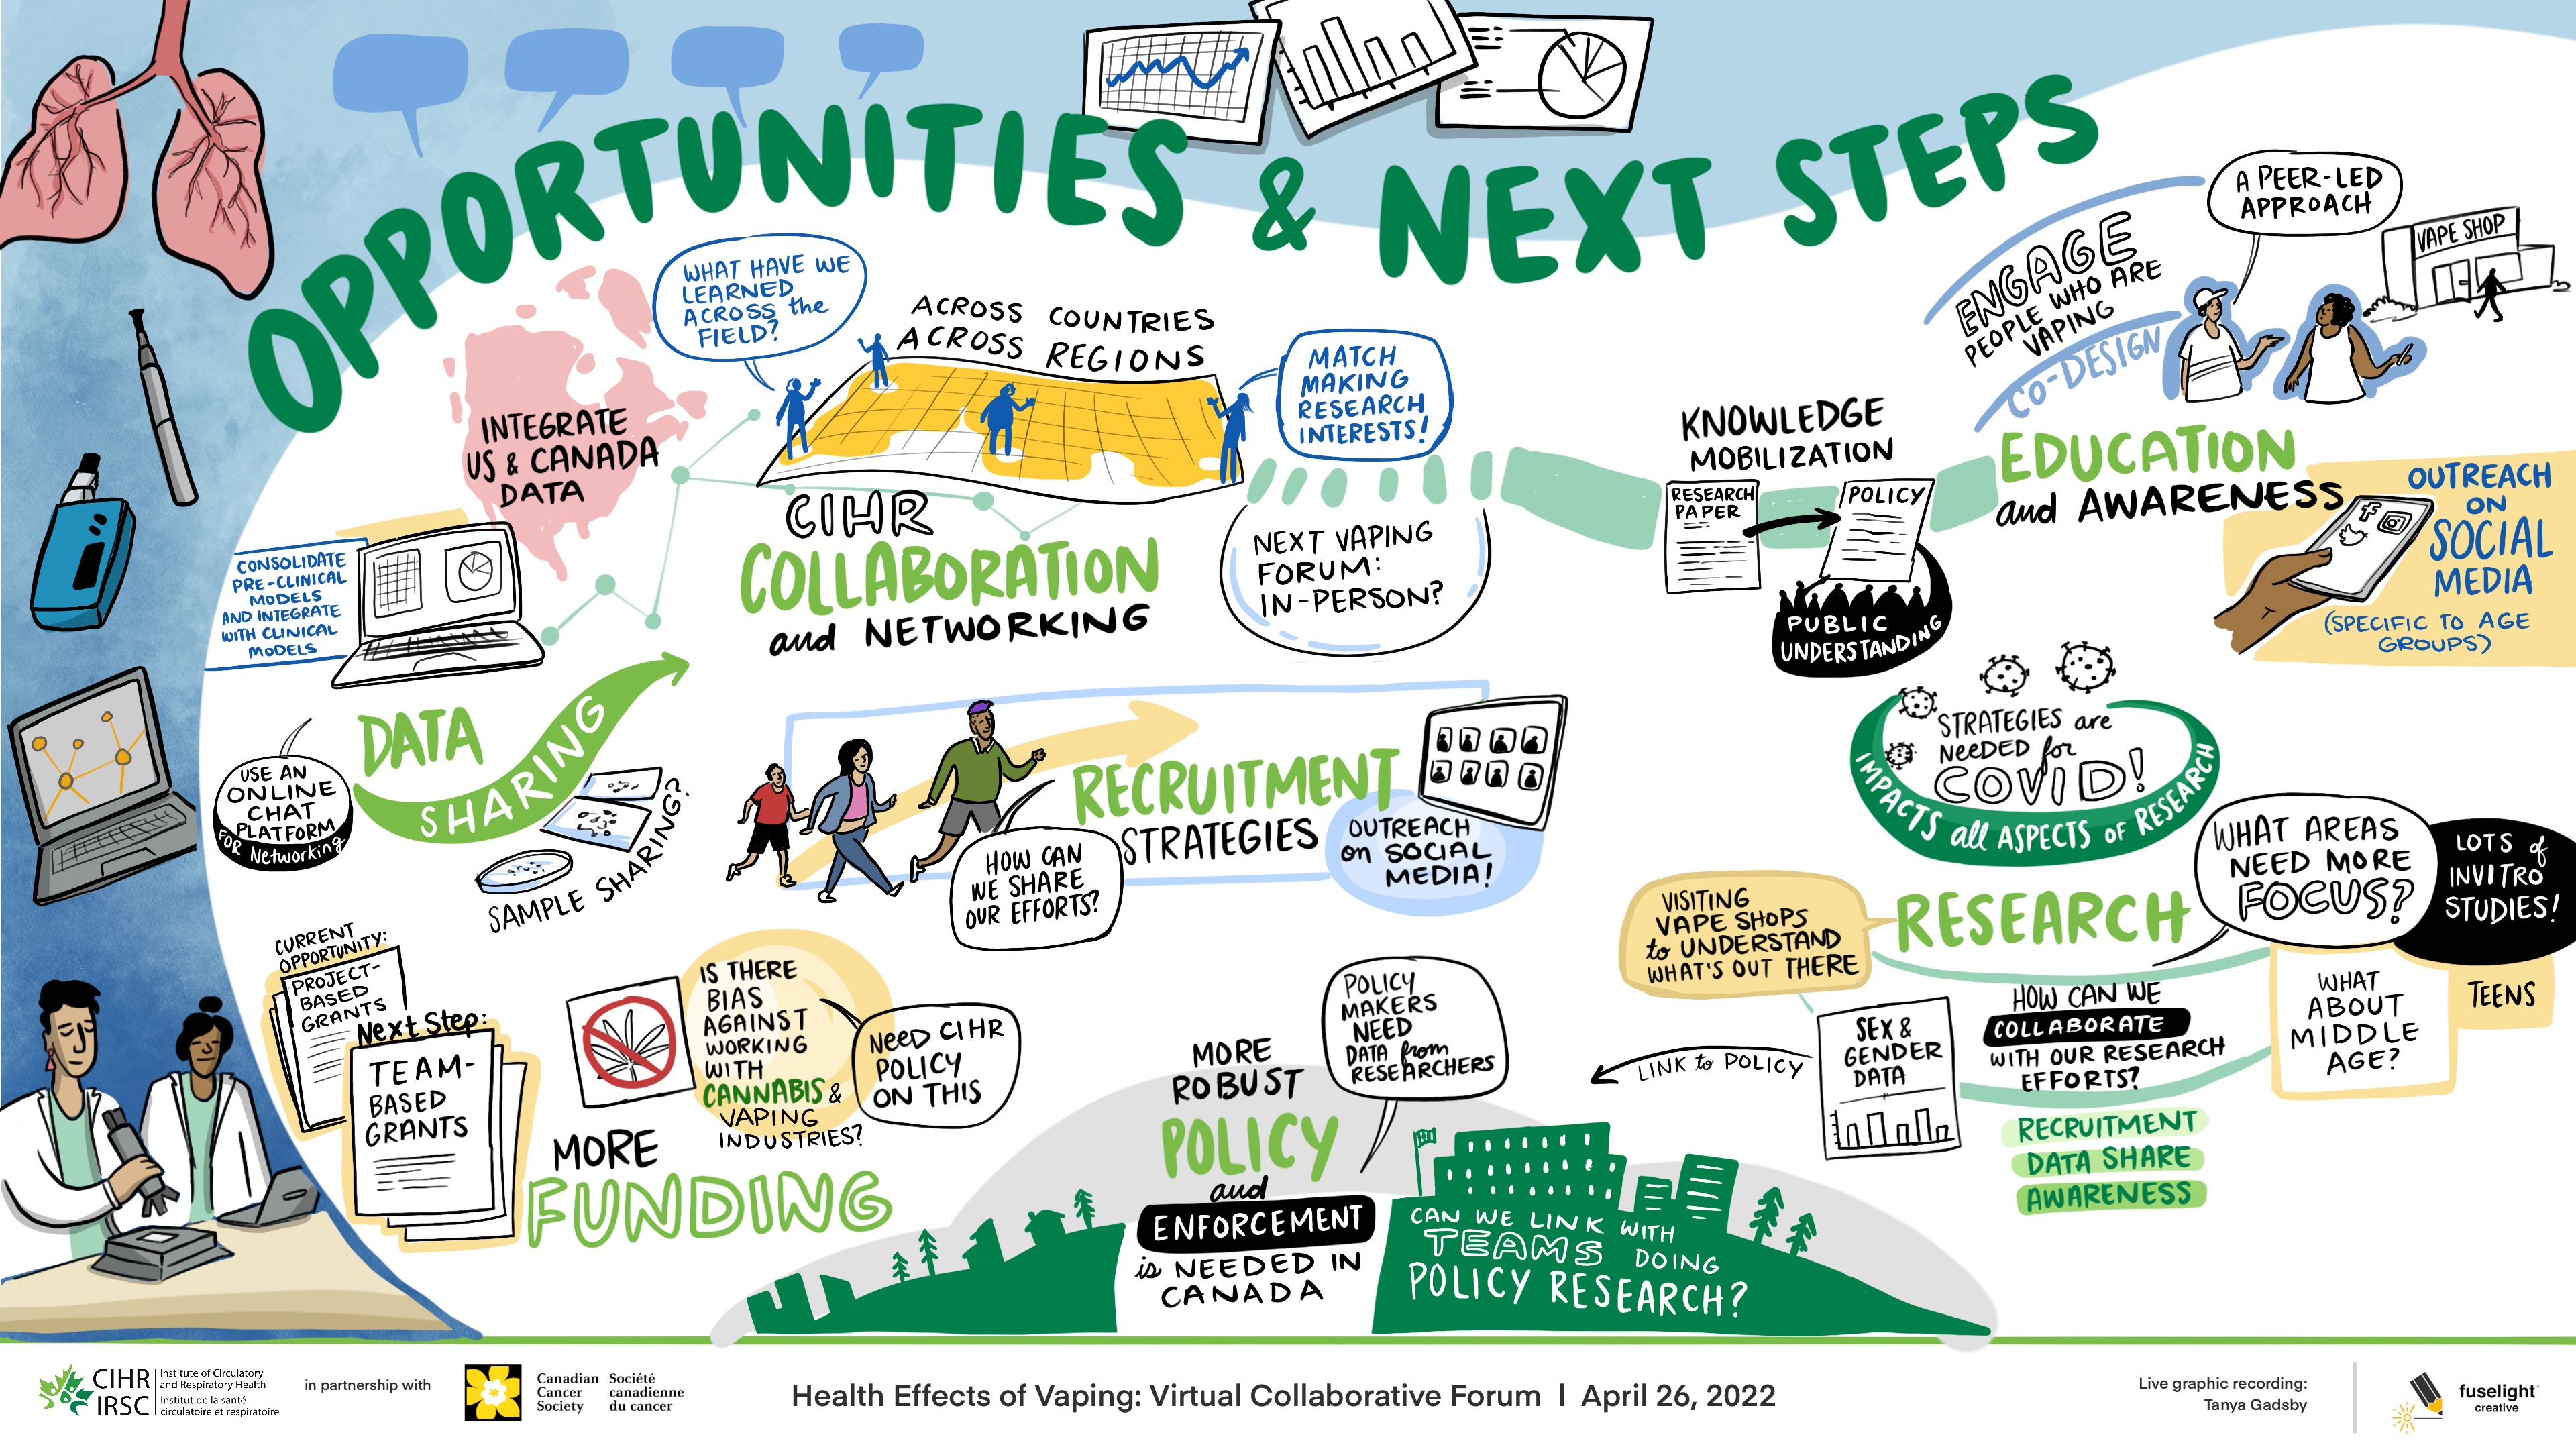 OPPORTUNITIES & NEXT STEPS
WHAT HAVE WE
LEARNED
ACROSS the
FIELD?
ACROSS COUNTRIES
ACROSS REGIONS
MATCH
MAKING
RESEARCH
INTERESTS!
INTEGRATE
US & CANADA
DATA
CONSOLIDATE
PRE-CLINICAL
MODELS
AND INTEGRATE
WITH CLINICAL
MODELS
DATA
SHARING
USE AN
ONLINE
CHAT
PLATFORM
FOR Networking
SAMPLE SHARING?
CIHR
COLLABORATION
and NETWORKING
NEXT VAPING
FORUM:
IN-PERSON?
KNOWLEDGE
MOBILIZATION
RESEARCH
PAPER
POLICY
PUBLIC
UNDERSTANDING
ENGAGE
PEOPLE WHO ARE
VAPING
CO-DESIGN
A PEER-LED
APPROACH
VAPE SHOP
EDUCATION
and AWARENESS
OUTREACH
ON
SOCIAL
MEDIA
(SPECIFIC TO AGE
GROUPS)
RECRUITMENT
STRATEGIES
HOW CAN
WE SHARE
OUR EFFORTS?
OUTREACH
on SOCIAL
MEDIA!
STRATEGIES are
NEEDED for
COVID!
IMPACTS all ASPECTS OF RESEARCH
VISITING
VAPE SHOPS
to UNDERSTAND
WHAT'S OUT THERE
RESEARCH
WHAT AREAS
NEED MORE
FOCUS?
LOTS of
INVITRO
STUDIES!
WHAT
ABOUT
MIDDLE
AGE?
TEENS
HOW CAN WE
COLLABORATE
WITH OUR RESEARCH
EFFORTS?
RECRUITMENT
DATA SHARE
AWARENESS
SEX &
GENDER
DATA
LINK to POLICY
CURRENT
OPPORTUNITY:
PROJECT-
BASED
GRANTS
Next Step:
TEAM-
BASED
GRANTS
MORE
FUNDING
IS THERE
BIAS
AGAINST
WORKING
WITH
CANNABIS &
VAPING
INDUSTRIES?
NEED CIHR
POLICY
ON THIS
MORE
ROBUST
POLICY
and
ENFORCEMENT
is NEEDED IN
CANADA
POLICY
MAKERS
NEED
DATA from
RESEARCHERS
CAN WE LINK WITH
TEAMS DOING
POLICY RESEARCH?
CIHR
IRSC
Institute of Circulatory
and Respiratory Health
Institut de la santé
circulatoire et respiratoire
in partnership with
Canadian
Cancer
Society
Société
canadienne
du cancer
Health Effects of Vaping: Virtual Collaborative Forum | April 26, 2022
Live graphic recording:
Tanya Gadsby
fuselight
creative